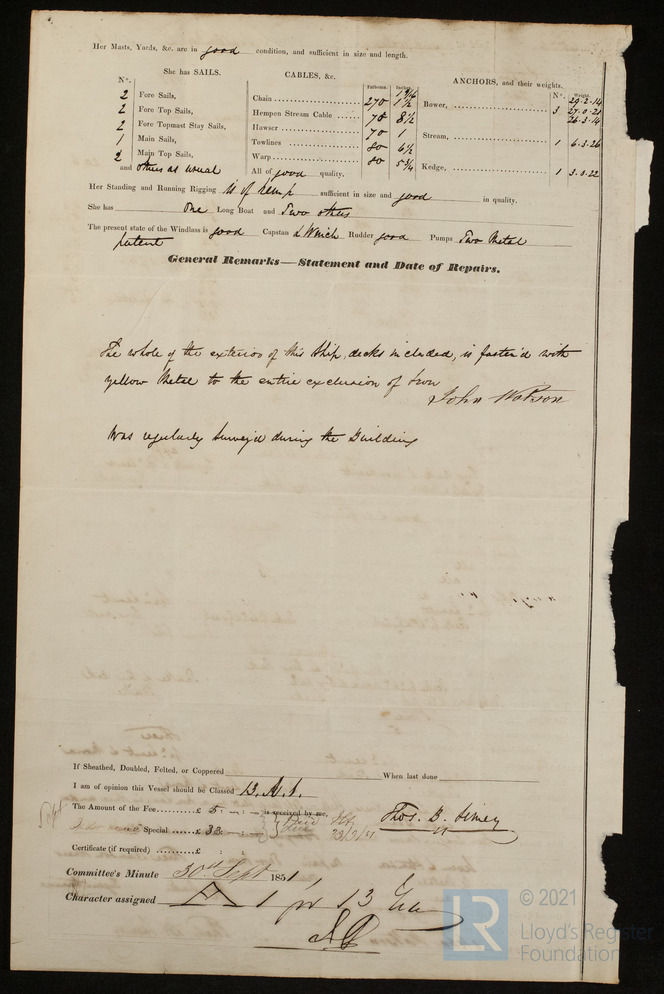 Her Masts, Yards, &c. are in good condition, and sufficient in size and length.
She has SAILS. CABLES, &c. ANCHORS, and their weights.
N°. Fathoms. Inches. N°. Weight.
2 Fore Sails,
2 Fore Top Sails,
2 Fore Topmast Stay Sails,
1 Main Sails,
2 Main Top Sails,
and others as usual
Chain 270 1 9/16 1 1/2
Hempen Stream Cable 70 8 1/2
Hawser 70 1
Towlines 80 6 1/2
Warp 80 5 3/4
All of good quality.
Bower, 3 29-2-14
27-0-21
26-3-14
Stream, 1 6-3-26
Kedge, 1 3-0-22
Her Standing and Running Rigging is of hemp sufficient in size and good in quality.
She has One Long Boat and Two others
The present state of the Windlass is good Capstan & Winch Rudder good Pumps Two Metal
patent
General Remarks—Statement and Date of Repairs.
The whole of the exterior of this Ship, decks included, is fasten'd with
yellow Metal to the entire exclusion of Iron
John Watson
Was regularly Survey'd during the Building
If Sheathed, Doubled, Felted, or Coppered When last done
I am of opinion this Vessel should be Classed 13. A. 1.
The Amount of the Fee £ 5 - : - : is received by me,
Special £ 33 - : -
Thos. B. Simey
Certificate (if required) £ : :
Committee's Minute 30th Sept 1851,
Character assigned A 1 for 13 Years
© 2021
LR Lloyd's Register
Foundation